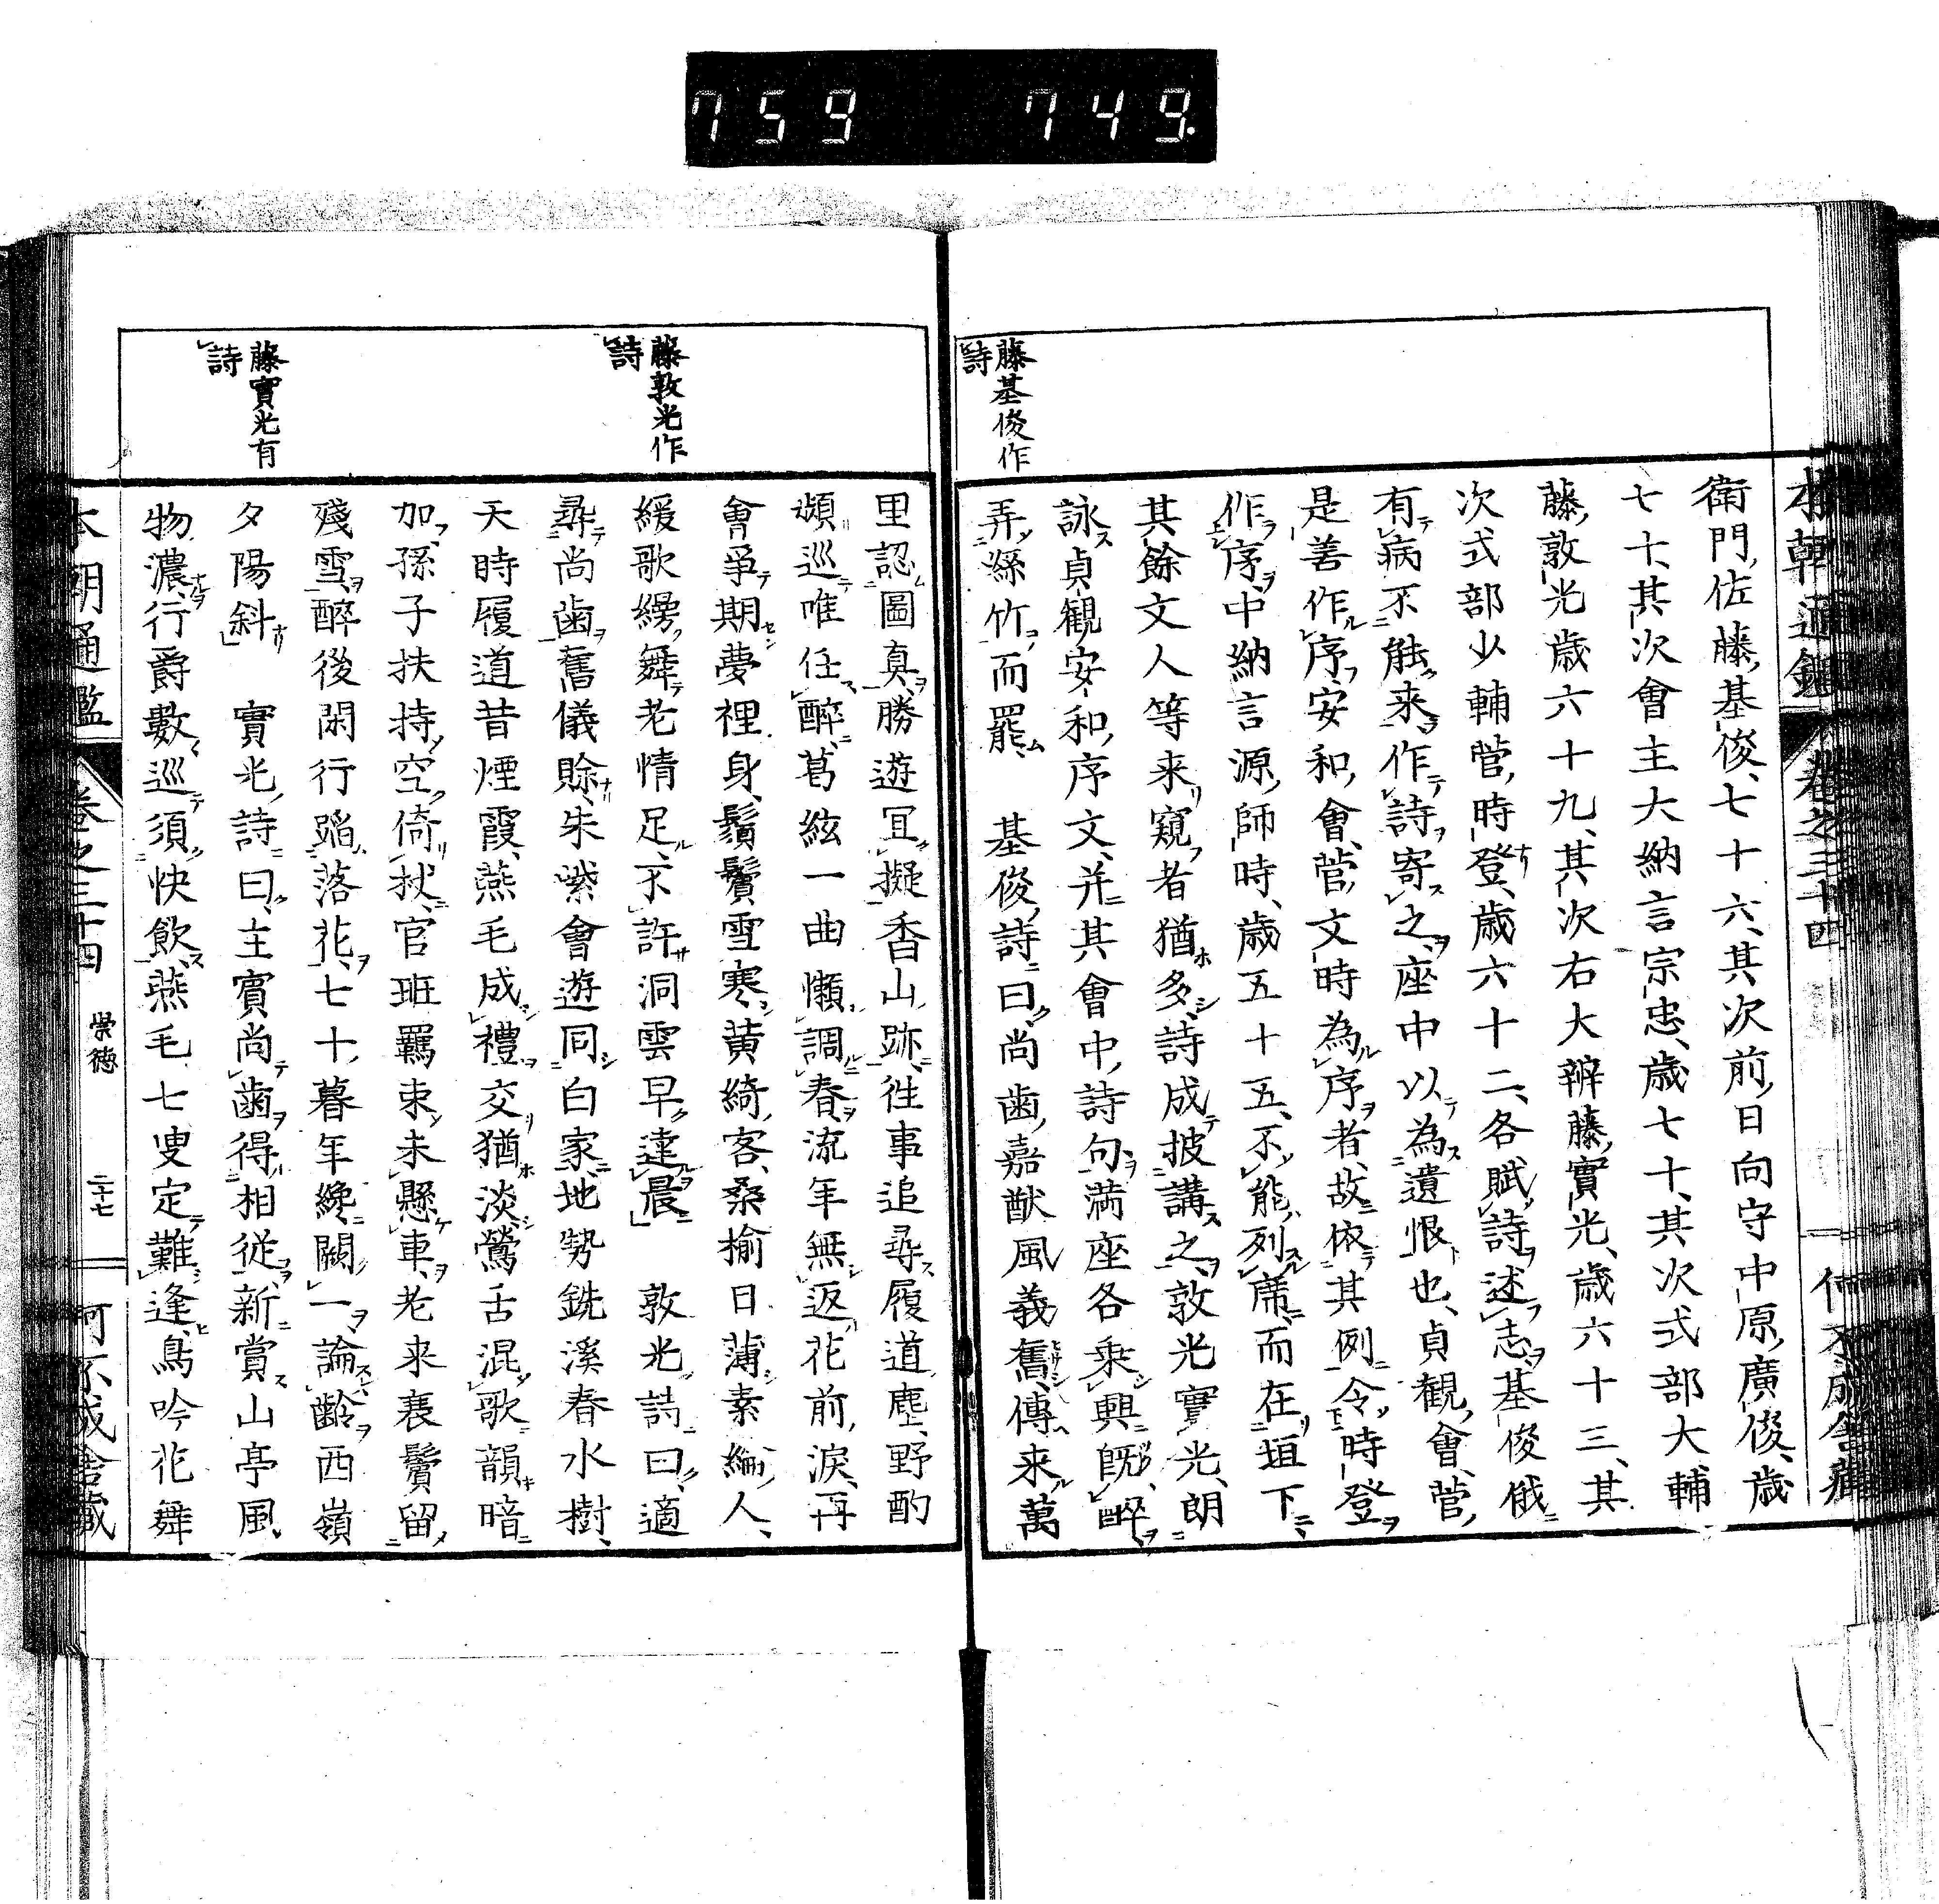 759 749.
本朝通鑑 卷之三十四
衛門佐藤基俊七十六其次前日向守中原廣俊歳
七十其次會主大納言宗忠歳七十其次式部大輔
藤敦光歳六十九其次右大辨藤實光歳六十三其
次式部少輔菅時登歳六十二各賦詩述志基俊俄
有病不能来作詩寄之座中以為遺恨也貞観會菅
是善作序安和會菅文時為序者故依其例令時登
作序中納言源師時歳五十五不能列席而在垣下
其餘文人等来窺者猶多詩成披講之敦光實光朗
詠貞観安和序文并其會中詩句満座各乗興既酔
弄絲竹而罷 基俊詩曰尚歯嘉猷風義舊傳来萬
藤基俊作
詩
里認圖真勝遊冝擬香山跡徃事追尋履道塵野酌
頻巡唯任醉葛絃一曲懶調春流年無返花前淚再
會爭期夢裡身鬚鬢雪寒黄綺客桑榆日薄素綸人
緩歌縵舞老情足不許洞雲早違晨 敦光詩曰適
尋尚歯舊儀賒朱紫會遊同白家地勢銑溪春水樹
天時履道昔煙霞燕毛成禮交猶淡鶯舌混歌韻暗
加孫子扶持空倚杖官班羈束未懸車老来衰鬢留
殘雪醉後閑行蹈落花七十暮年纔闕一論齡西嶺
夕陽斜 實光詩曰主賓尚歯得相従新賞山亭風
物濃行爵數巡須快飲燕毛七叟定難逢鳥吟花舞
藤敦光作
詩
藤實光有
詩
本朝通鑑 卷之三十四 崇徳 二十七